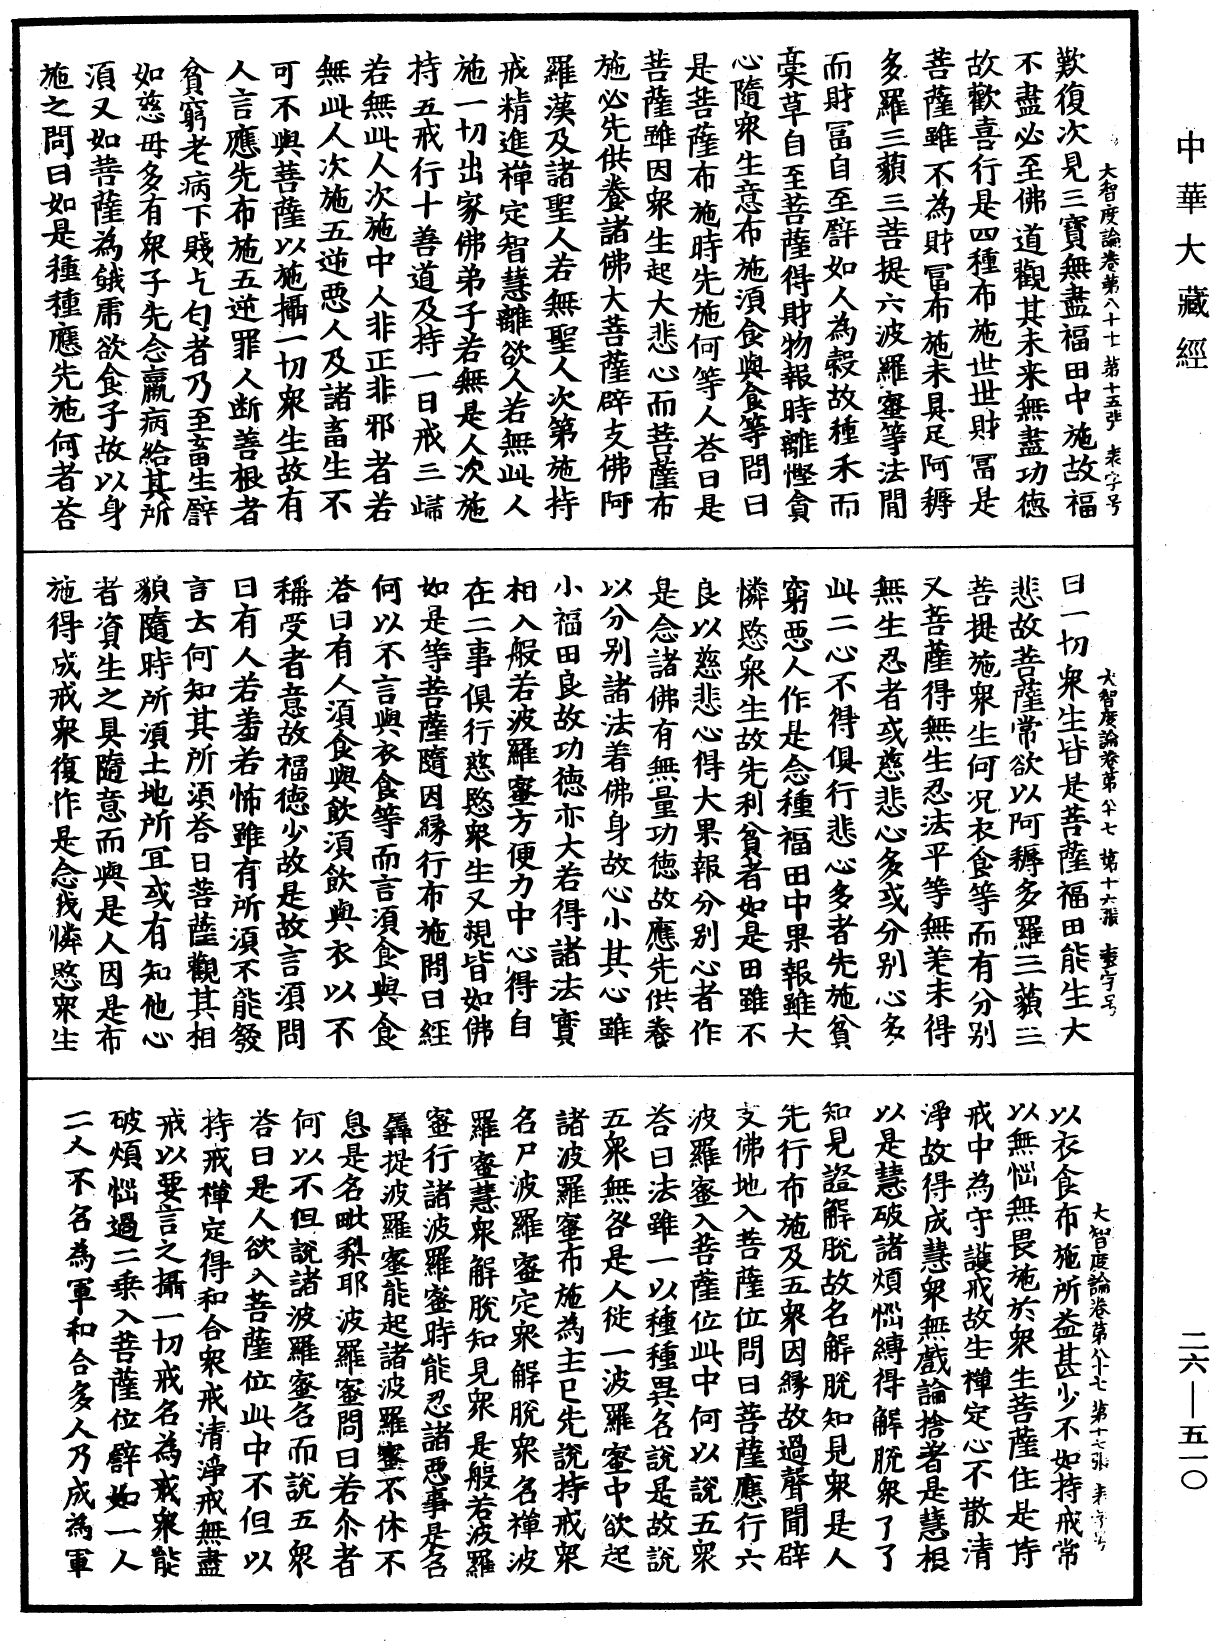 中華大藏經
大智度論卷第八十七 第十五張 表字号
歎復次見三寶無盡福田中施故福
不盡必至佛道觀其未来無盡功德
故歡喜行是四種布施世世財冨是
菩薩雖不為財冨布施未具足阿耨
多羅三藐三菩提六波羅蜜等法間
而財冨自至譬如人為穀故種禾而
槀草自至菩薩得財物報時離慳貪
心隨衆生意布施須食與食等問曰
是菩薩布施時先施何等人荅曰是
菩薩雖因衆生起大悲心而菩薩布
施必先供養諸佛大菩薩辟支佛阿
羅漢及諸聖人若無聖人次第施持
戒精進禪定智慧離欲人若無此人
施一切出家佛弟子若無是人次施
持五戒行十善道及持一日戒三歸
若無此人次施中人非正非邪者若
無此人次施五逆惡人及諸畜生不
可不與菩薩以施攝一切衆生故有
人言應先布施五逆罪人断善根者
貧窮老病下賤乞匃者乃至畜生譬
如慈母多有衆子先念羸病給其所
須又如菩薩為餓虎欲食子故以身
施之問曰如是種種應先施何者荅
大智度論卷第八十七 第十六張 表字号
曰一切衆生皆是菩薩福田能生大
悲故菩薩常欲以阿耨多羅三藐三
菩提施衆生何况衣食等而有分别
又菩薩得無生忍法平等無差未得
無生忍者或慈悲心多或分别心多
此二心不得俱行悲心多者先施貧
窮惡人作是念種福田中果報雖大
憐愍衆生故先利貧者如是田雖不
良以慈悲心得大果報分别心者作
是念諸佛有無量功德故應先供養
以分别諸法著佛身故心小其心雖
小福田良故功德亦大若得諸法實
相入般若波羅蜜方便力中心得自
在二事俱行慈愍衆生又視皆如佛
如是等菩薩隨因緣行布施問曰經
何以不言與衣食等而言須食與食
荅曰有人須食與飲須飲與衣以不
稱受者意故福德少故是故言須問
曰有人若羞若怖雖有所須不能發
言云何知其所須荅曰菩薩觀其相
貌隨時所須土地所冝或有知他心
者資生之具隨意而與是人因是布
施得成戒衆復作是念我憐愍衆生
大智度論卷第八十七 第十七張 表字号
以衣食布施所益甚少不如持戒常
以無惱無畏施於衆生菩薩住是持
戒中為守護戒故生禪定心不散清
淨故得成慧衆無戲論捨著是慧根
以是慧破諸煩惱縛得解脫衆了了
知見證解脫故名解脫知見衆是人
先行布施及五衆因緣故過聲聞辟
支佛地入菩薩位問曰菩薩應行六
波羅蜜入菩薩位此中何以說五衆
荅曰法雖一以種種異名說是故說
五衆無咎是人從一波羅蜜中欲起
諸波羅蜜布施為主已先說持戒衆
名尸波羅蜜定衆解脫衆名禪波
羅蜜慧衆解脫知見衆是般若波羅
蜜行諸波羅蜜時能忍諸惡事是名
羼提波羅蜜能起諸波羅蜜不休不
息是名毗梨耶波羅蜜問曰若尒者
何以不但說諸波羅蜜名而說五衆
荅曰是人欲入菩薩位此中不但以
持戒禪定得和合衆戒清淨戒無盡
戒以要言之攝一切戒名為戒衆能
破煩惱過二乘入菩薩位譬如一人
二人不名為軍和合多人乃成為軍
二六—五一〇